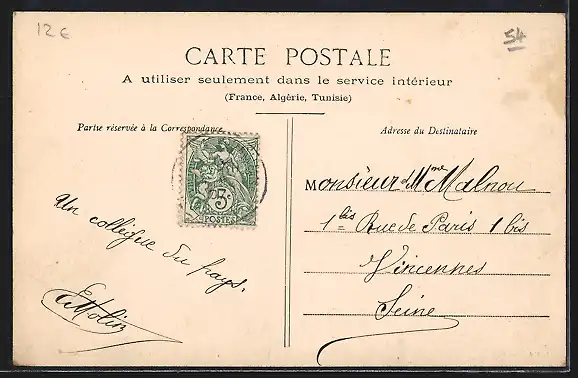 12€
54
CARTE POSTALE
A utiliser seulement dans le service intérieur
(France, Algérie, Tunisie)
Partie réservée à la Correspondance
Adresse du Destinataire
5c
POSTES
Un collègue du pays.
Monsieur & Mme Malnou
1 bis Rue de Paris 1 bis
Vincennes
Seine